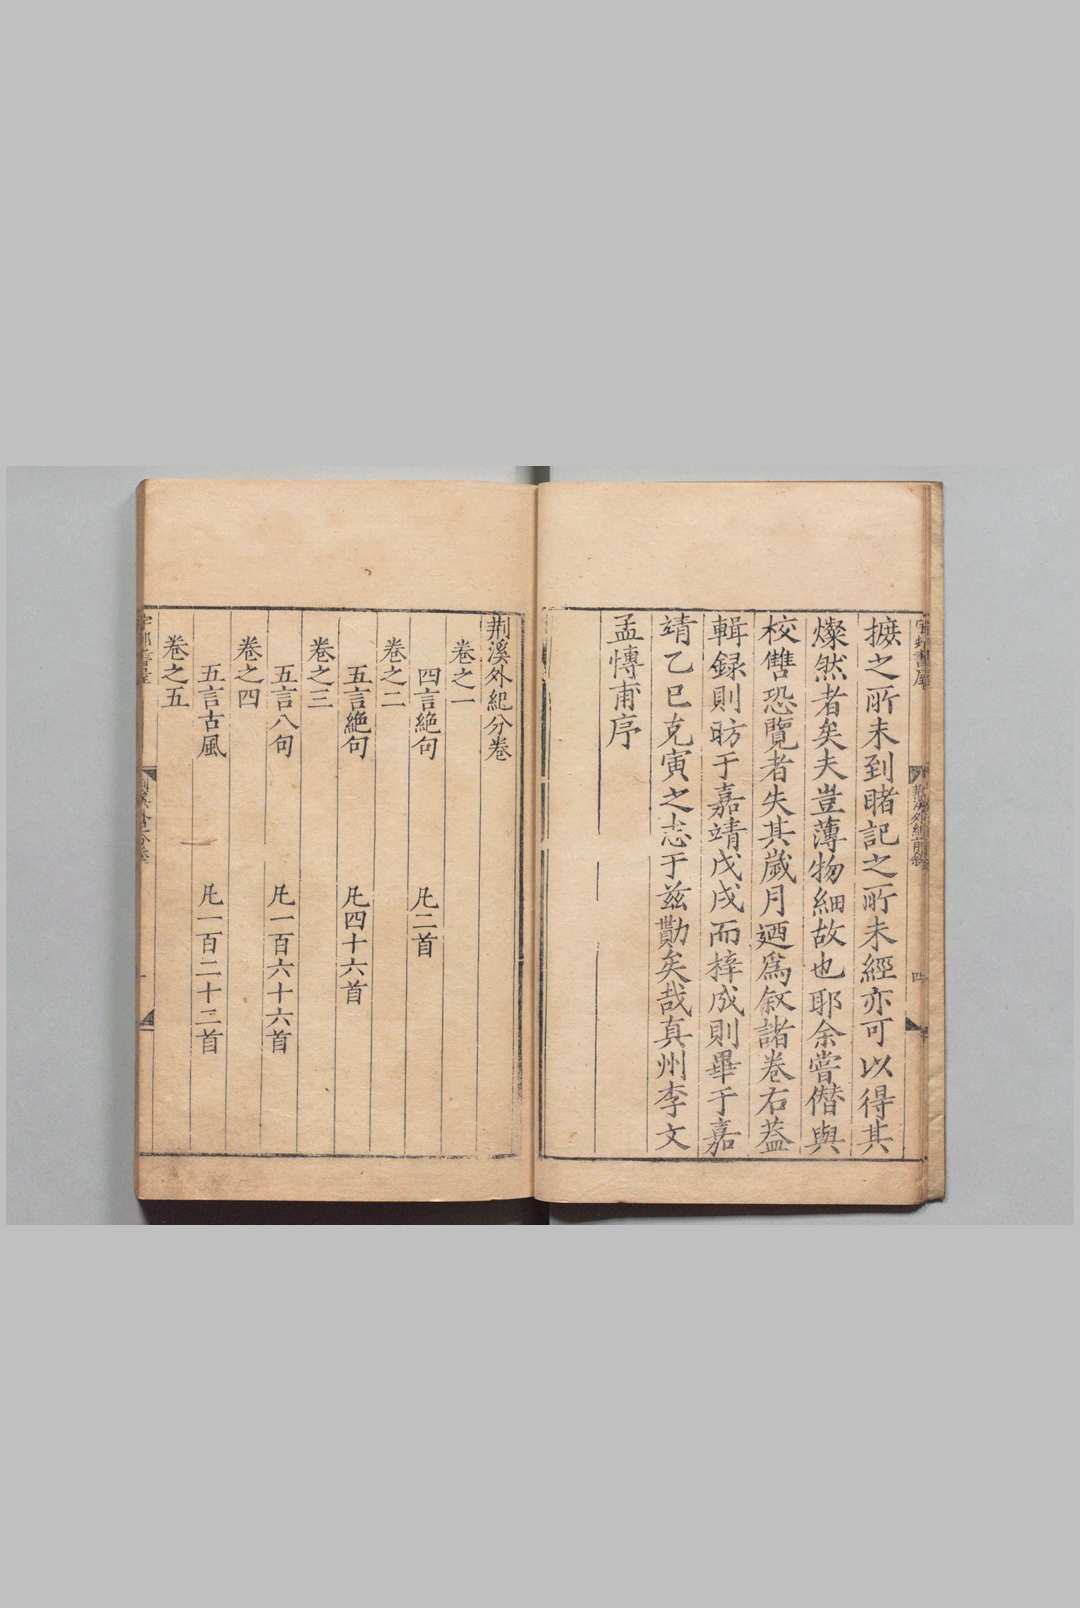 摭之所未到睹記之所未經亦可以得其
燦然者矣夫豈薄物細故也耶余嘗僣與
校讐恐覽者失其歲月廼爲叙諸卷右蓋
輯録則昉于嘉靖戊戌而梓成則畢于嘉
靖乙巳克寅之志于兹勤矣哉真州李文
孟慱甫序
荆溪外紀分卷
卷之一
四言絶句 凡二首
卷之二
五言絶句 凡四十六首
卷之三
五言八句 凡一百六十六首
卷之四
五言古風 凡一百二十二首
卷之五